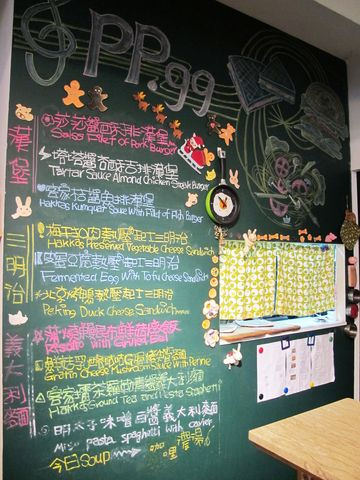 PP.99
漢堡
莎莎醬豬排漢堡
Salsa Fillet of Pork Burger
塔塔醬杏仁吉排漢堡
Tartar Sauce Almond Chicken Steak Burger
客家桔醬魚排漢堡
Hakkas Kumquat Sauce With Fillet of Fish Burger
三明治
Hakkas Preserved Vegetable Cheese Sandwich
Fermented Egg With Tofu Cheese Sandwich
北京烤鴨熱壓起士三明治
Peking Duck Cheese Sandwich
義大利麵
Risotto with Grilled Eel
Gratin Cheese Mushroom Sauce With Penne
Hakka Ground Tea and Pesto Spaghetti
明太子味噌白醬義大利麵
Miso pasta spaghetti with caviar
今日Soup 咖哩濃湯